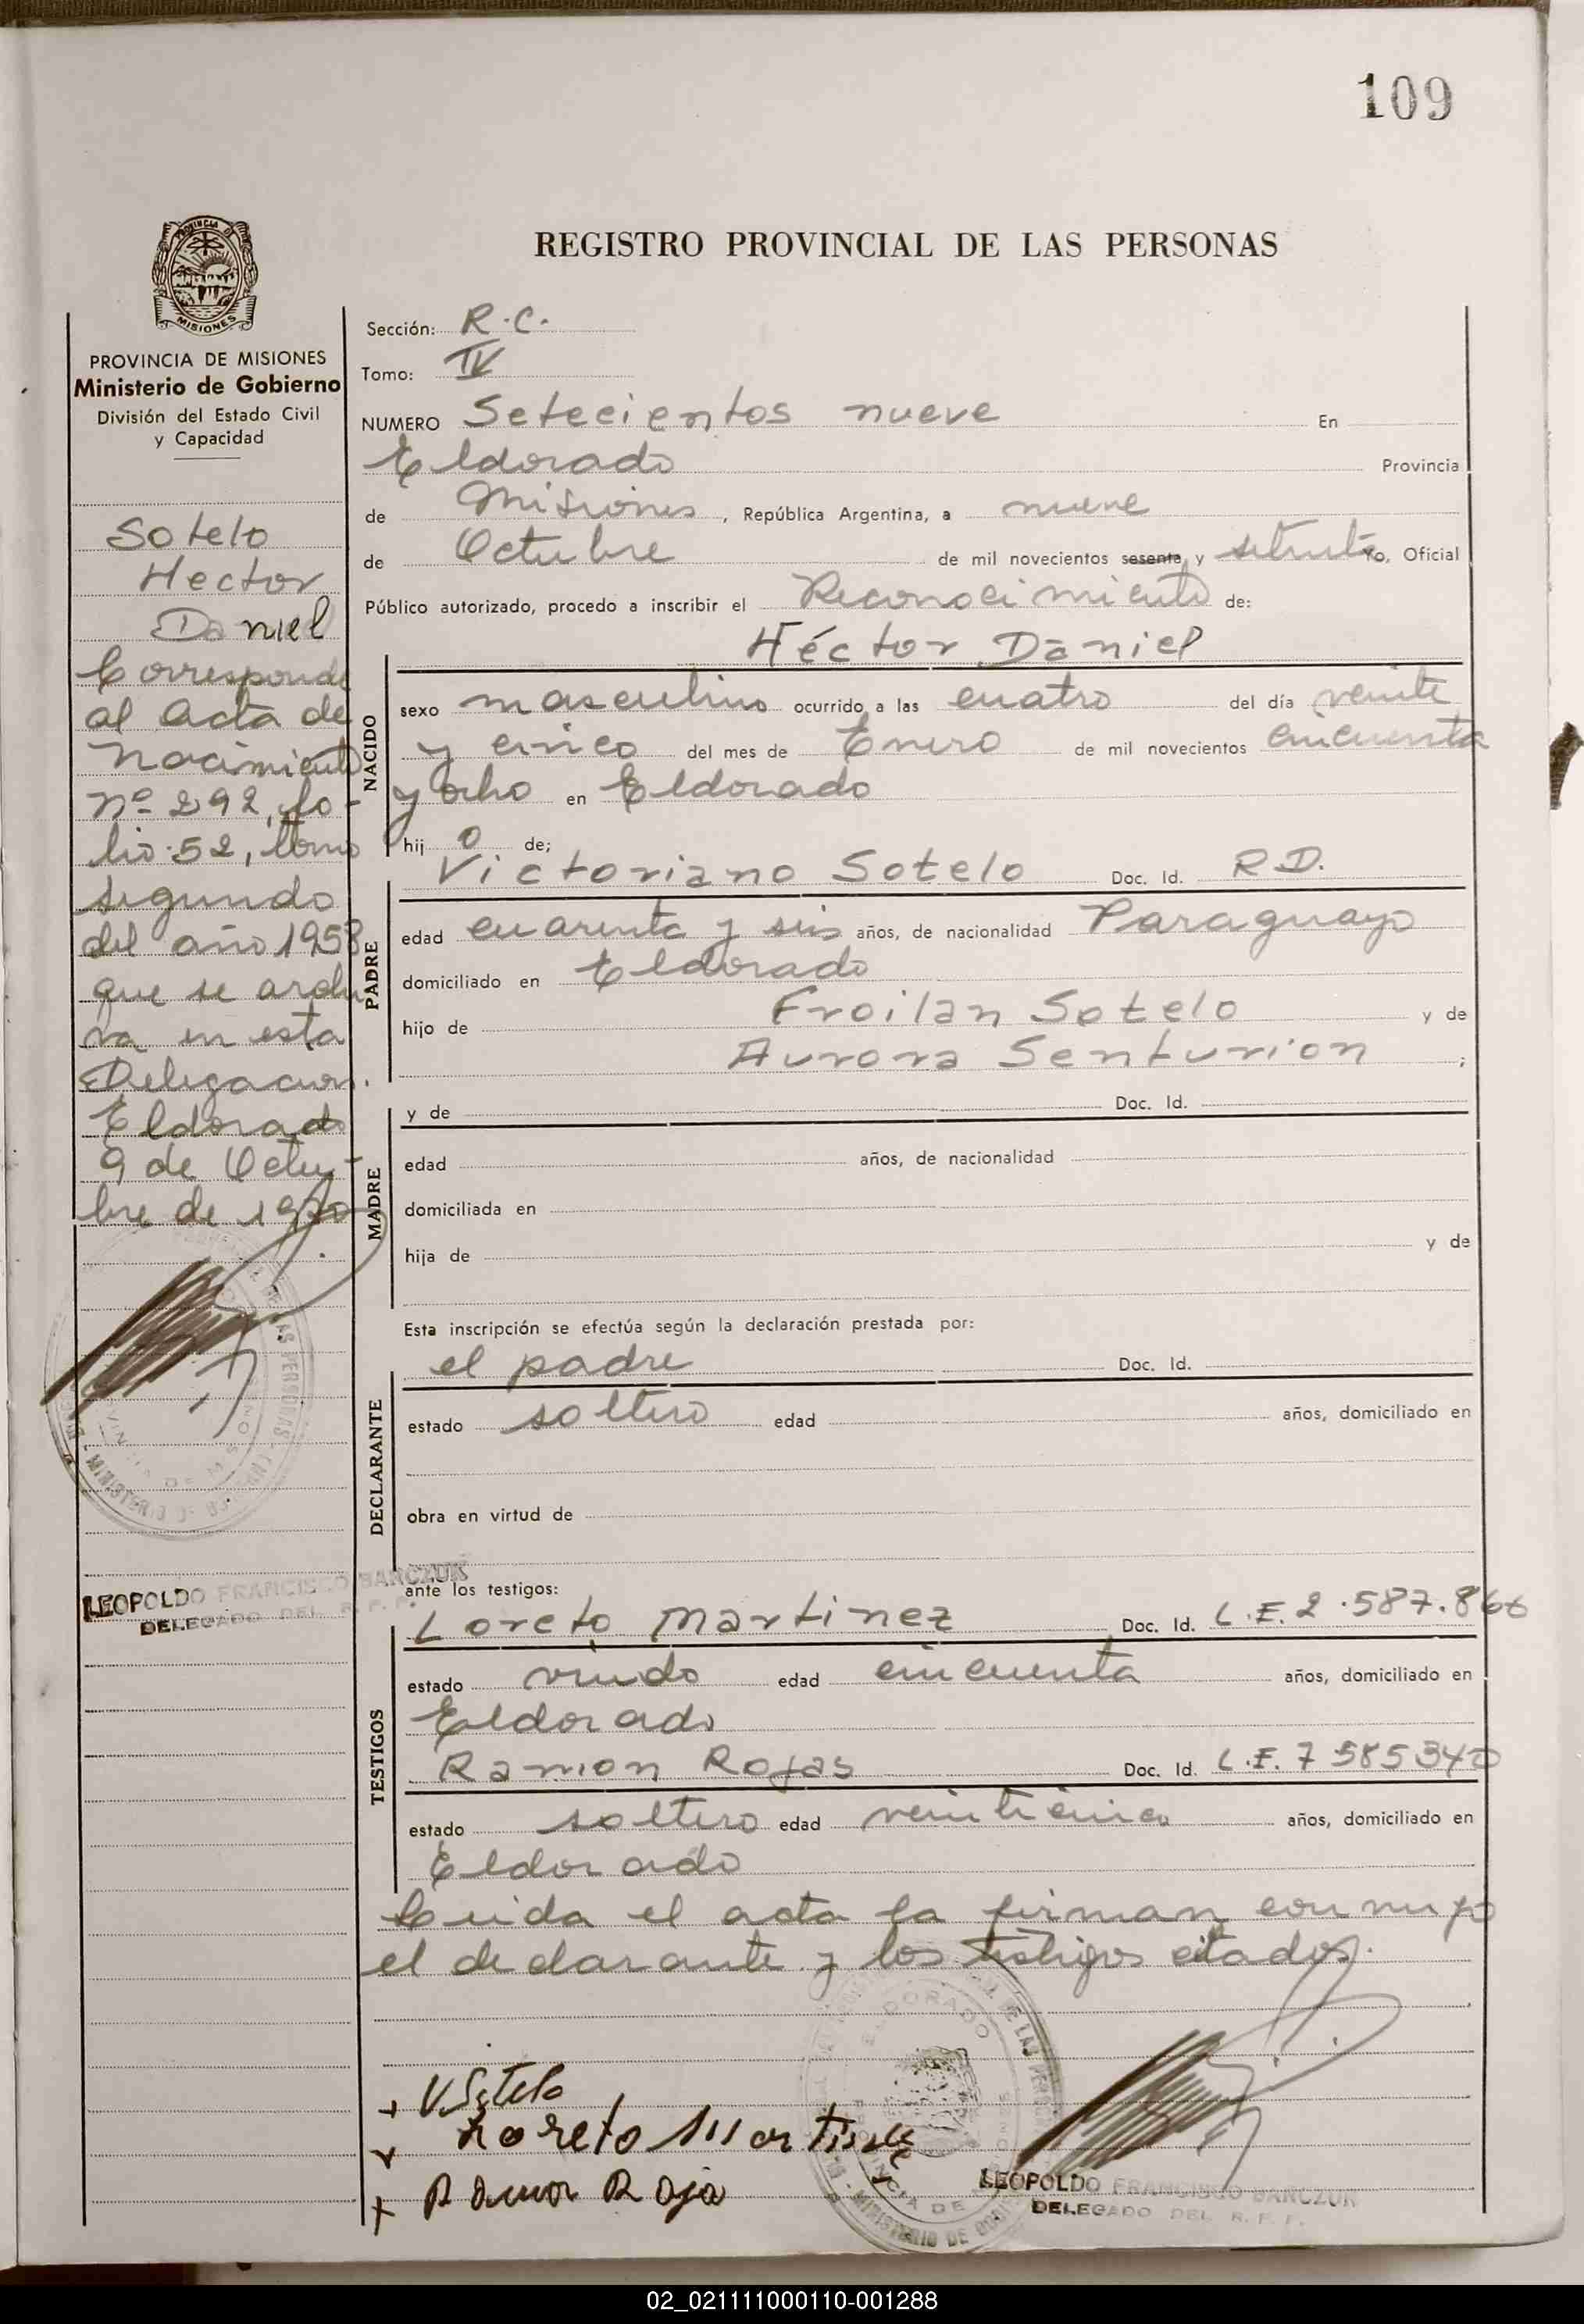 109
PROVINCIA DE MISIONES
REGISTRO PROVINCIAL DE LAS PERSONAS
PROVINCIA DE MISIONES
Ministerio de Gobierno
División del Estado Civil
y Capacidad
Sotelo
Hector
Daniel
Corresponde
al acta de
nacimiento
nº 292, fo-
lio 52, tomo
segundo
del año 1958
que se archi
va en esta
Delegacion.
Eldorado
9 de Octu-
bre de 1970
LEOPOLDO FRANCISCO BANCZUK
DELEGADO DEL R. P. P.
Sección: R.C.
Tomo: IV
NUMERO Setecientos nueve En
Eldorado Provincia
de Misiones, República Argentina, a nueve
de Octubre de mil novecientos sesenta y setenta Yo, Oficial
Público autorizado, procedo a inscribir el Reconocimiento de:
Héctor Daniel
NACIDO
sexo masculino ocurrido a las cuatro del día veinte
y cinco del mes de Enero de mil novecientos cincuenta
y ocho en Eldorado
hijo de;
Victoriano Sotelo Doc. Id. R.D.
PADRE
edad cuarenta y seis años, de nacionalidad Paraguayo
domiciliado en Eldorado
hijo de Froilan Sotelo y de
Aurora Senturion ;
MADRE
y de Doc. Id.
edad años, de nacionalidad
domiciliada en
hija de y de
Esta inscripción se efectúa según la declaración prestada por:
el padre Doc. Id.
DECLARANTE
estado soltero edad años, domiciliado en
obra en virtud de
ante los testigos:
Loreto Martinez Doc. Id. L.E. 2.587.866
TESTIGOS
estado viudo edad cincuenta años, domiciliado en
Eldorado
Ramon Rojas Doc. Id. L.E. 7585340
estado soltero edad veinticinco años, domiciliado en
Eldorado
Leida el acta la firman conmigo
el declarante y los testigos citados.
V Sotelo
Loreto Martinez
Ramon Roja
LEOPOLDO FRANCISCO BANCZUK
DELEGADO DEL R. P. P.
02_021111000110-001288